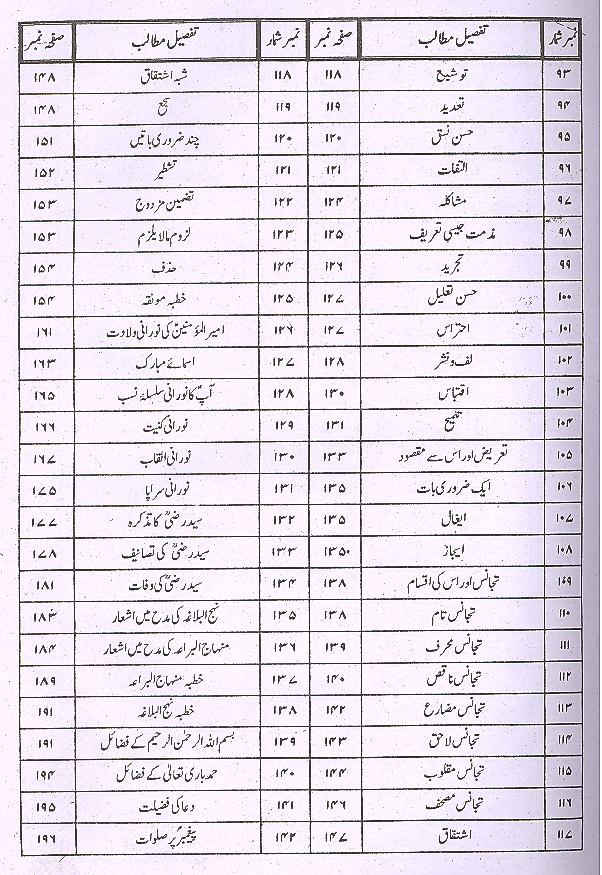 نمبر شمار	تفصیل مطالب	صفحہ نمبر	نمبر شمار	تفصیل مطالب	صفحہ نمبر
۹۳	توشیع	۱۱۸	۱۱۸	شبہ اشتقاق	۱۴۸
۹۴	تعدید	۱۱۹	۱۱۹	سجع	۱۴۸
۹۵	حسن نسق	۱۲۰	۱۲۰	چند ضروری باتیں	۱۵۱
۹۶	التفات	۱۲۱	۱۲۱	تشطیر	۱۵۲
۹۷	مشاکلہ	۱۲۴	۱۲۲	تضمین مزدوج	۱۵۳
۹۸	مذمت جیسی تعریف	۱۲۵	۱۲۳	لزوم مالا یلزم	۱۵۳
۹۹	تجرید	۱۲۶	۱۲۴	حذف	۱۵۴
۱۰۰	حسن تعلیل	۱۲۷	۱۲۵	خطبہ مونقہ	۱۵۴
۱۰۱	احتراس	۱۲۷	۱۲۶	امیر المؤمنینؑ کی نورانی ولادت	۱۶۱
۱۰۲	لف و نشر	۱۲۸	۱۲۷	اسمائے مبارک	۱۶۳
۱۰۳	اقتباس	۱۳۰	۱۲۸	آپؑ کا نورانی سلسلۂ نسب	۱۶۵
۱۰۴	تلمیح	۱۳۱	۱۲۹	نورانی کنیت	۱۶۶
۱۰۵	تعریض اور اس سے مقصود	۱۳۳	۱۳۰	نورانی القاب	۱۶۷
۱۰۶	ایک ضروری بات	۱۳۵	۱۳۱	نورانی سراپا	۱۷۵
۱۰۷	ایغال	۱۳۵	۱۳۲	سید رضیؒ کا تذکرہ	۱۷۷
۱۰۸	ایجاز	۱۳۵	۱۳۳	سید رضیؒ کی تصانیف	۱۷۸
۱۰۹	تجانس اور اس کی اقسام	۱۳۸	۱۳۴	سید رضیؒ کی وفات	۱۸۱
۱۱۰	تجانس تام	۱۳۸	۱۳۵	نہج البلاغہ کی مدح میں اشعار	۱۸۳
۱۱۱	تجانس محرف	۱۳۹	۱۳۶	منہاج البراعہ کی مدح میں اشعار	۱۸۴
۱۱۲	تجانس ناقص	۱۴۰	۱۳۷	خطبہ منہاج البراعہ	۱۸۹
۱۱۳	تجانس مضارع	۱۴۲	۱۳۸	خطبہ نہج البلاغہ	۱۹۱
۱۱۴	تجانس لاحق	۱۴۳	۱۳۹	بسم اللہ الرحمٰن الرحیم کے فضائل	۱۹۱
۱۱۵	تجانس مقلوب	۱۴۴	۱۴۰	حمد باری تعالیٰ کے فضائل	۱۹۴
۱۱۶	تجانس مصحف	۱۴۶	۱۴۱	دعا کی فضیلت	۱۹۵
۱۱۷	اشتقاق	۱۴۷	۱۴۲	پیغمبرؐ پر صلوات	۱۹۶